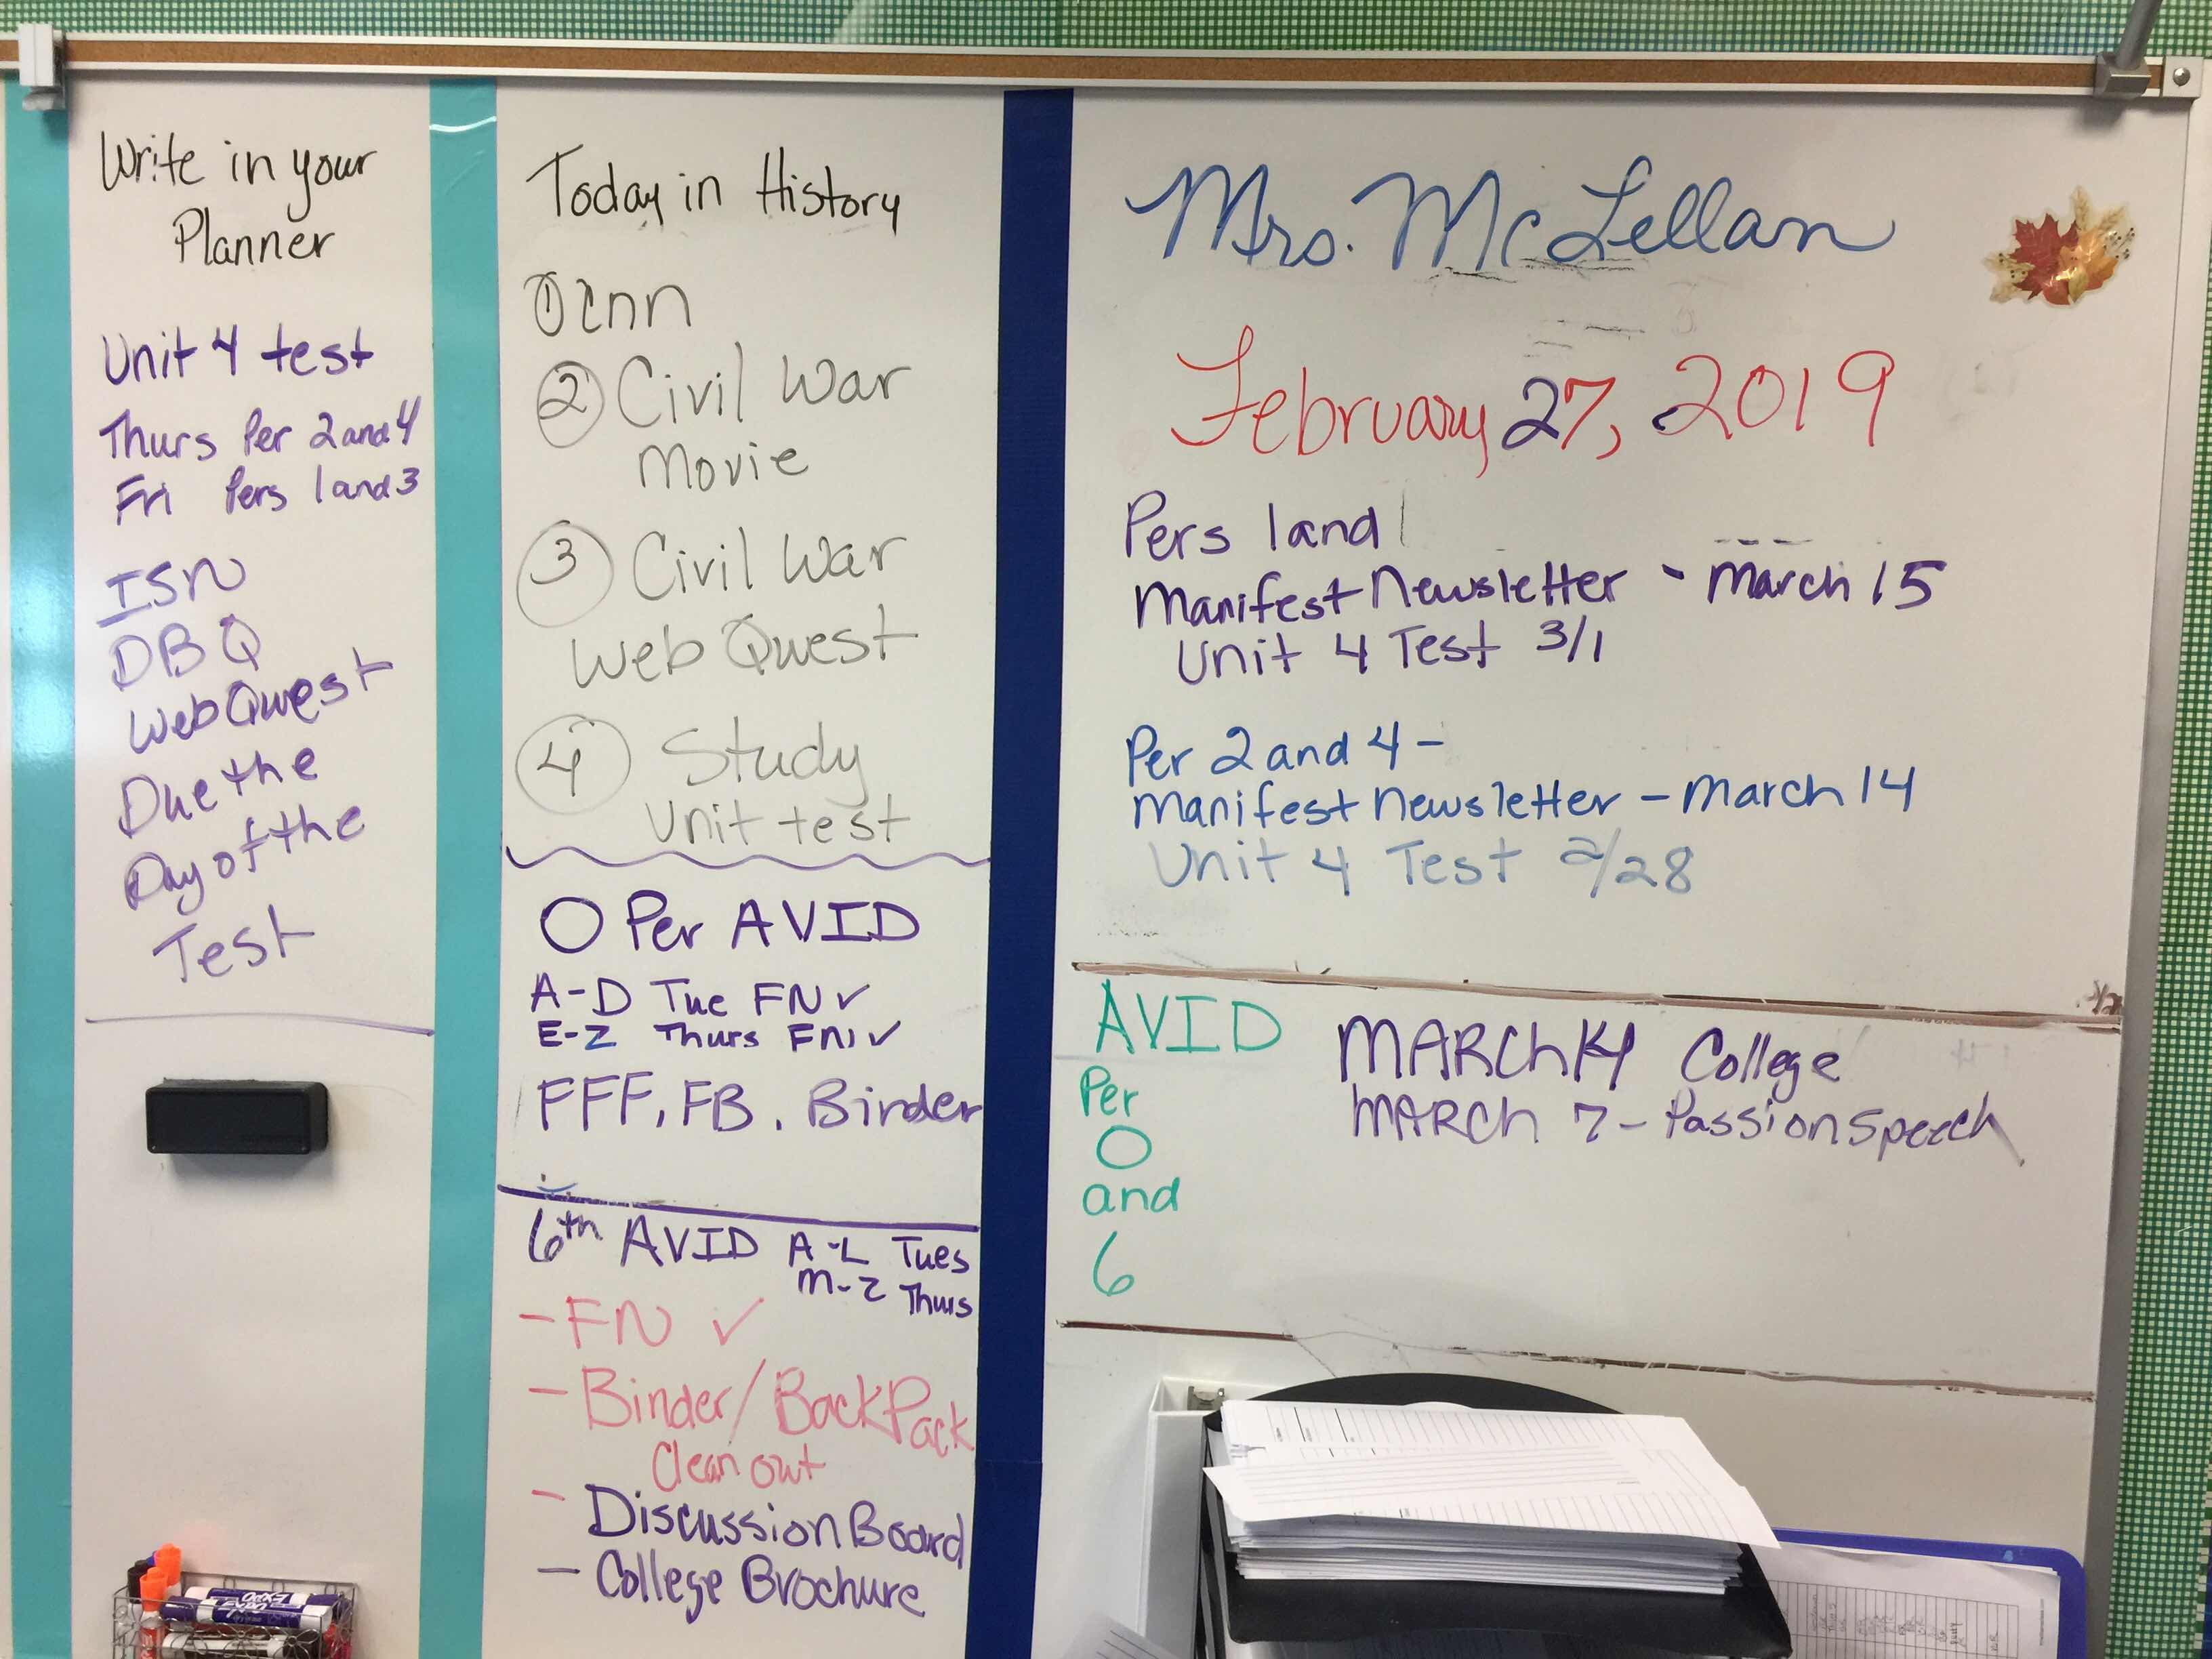 Write in your
Planner
Unit 4 test
Thurs Per 2 and 4
Fri Pers 1 and 3
ISN
DBQ
WebQuest
Due the
Day of the
Test
Today in History
① cnn
② Civil War
Movie
③ Civil War
Web Quest
④ Study
Unit test
O Per AVID
A-D Tue FN ✓
E-Z Thurs FN ✓
FFF, FB. Binder
6th AVID A-L Tues
M-Z Thurs
- FN ✓
- Binder/BackPack
Clean out
- Discussion Board
- College Brochure
Mrs. McLellan
February 27, 2019
Pers 1 and
Manifest Newsletter - March 15
Unit 4 Test 3/1
Per 2 and 4 -
Manifest Newsletter - March 14
Unit 4 Test 2/28
AVID
Per
O
and
6
MARCH 14 College
MARCH 7 - Passion Speech
EXPO